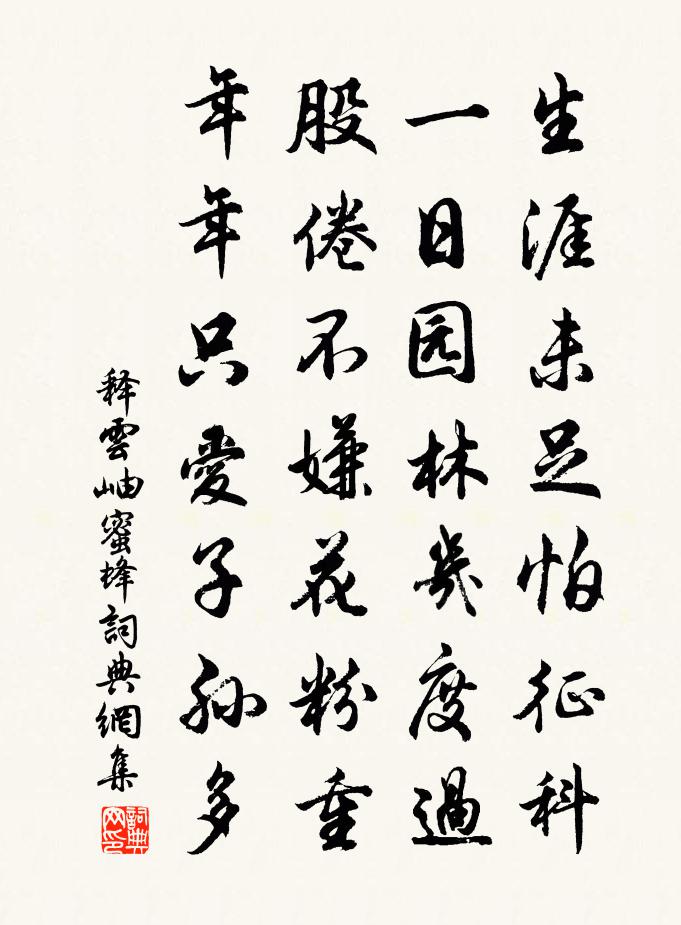 生涯未足怕征科
一日园林幾度過
股倦不嫌花粉重
年年只愛子孙多
释雲岫蜜蜂詞典網集
詞典网印